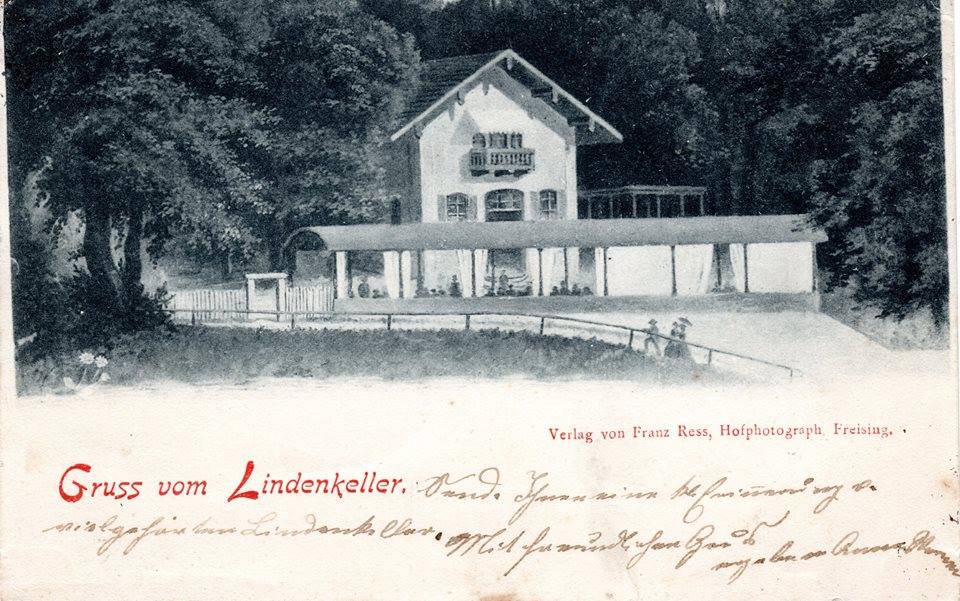 Verlag von Franz Ress, Hofphotograph Freising.
Gruss vom Lindenkeller. Sende Ihnen eine kl. Erinnerung v.
vielgehörten Lindenkeller. Mit freundlichen Gruß
Anna